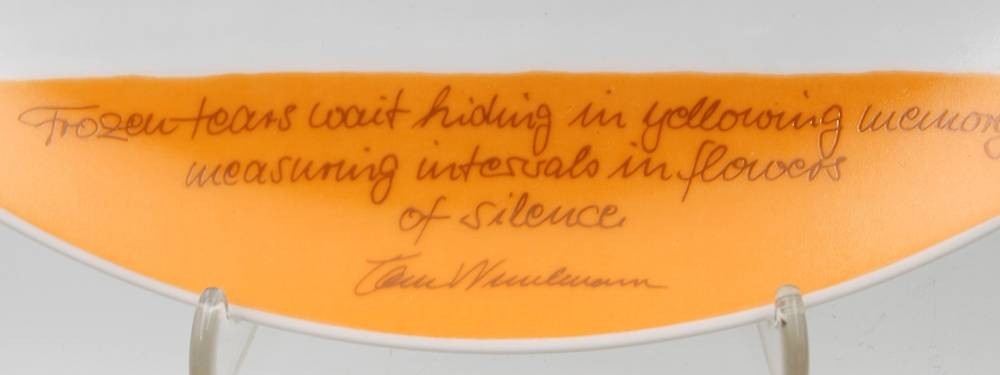 Frozen tears wait hiding in yellowing memory
measuring intervals in flowers
of silence